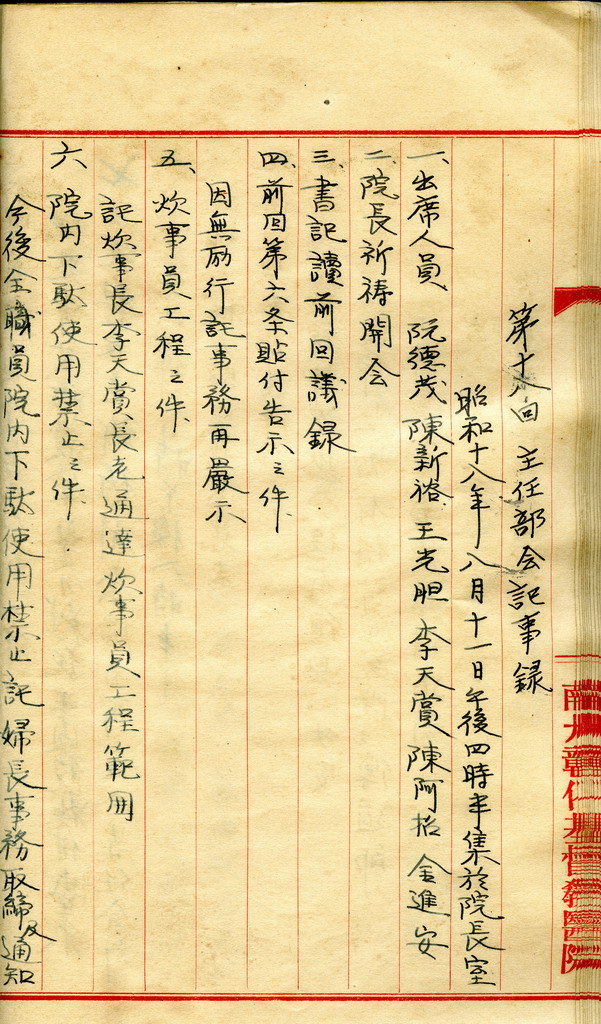 第十六回 主任部会記事録
昭和十八年八月十一日午後四時半集於院長室
一、出席人員 阮德茂 陳新裕 王光胆 李天賞 陳阿招 金進安
二、院長祈祷開会
三、書記讀前回議録
四、前回第六条貼付告示之件
因無励行託事務再嚴示
五、炊事員工程之件、
託炊事長李天賞長老通達炊事員工程範囲
六、院内下駄使用禁止之件、
今後全職員院内下駄使用禁止託婦長事務取締及通知
彰化基督教醫院